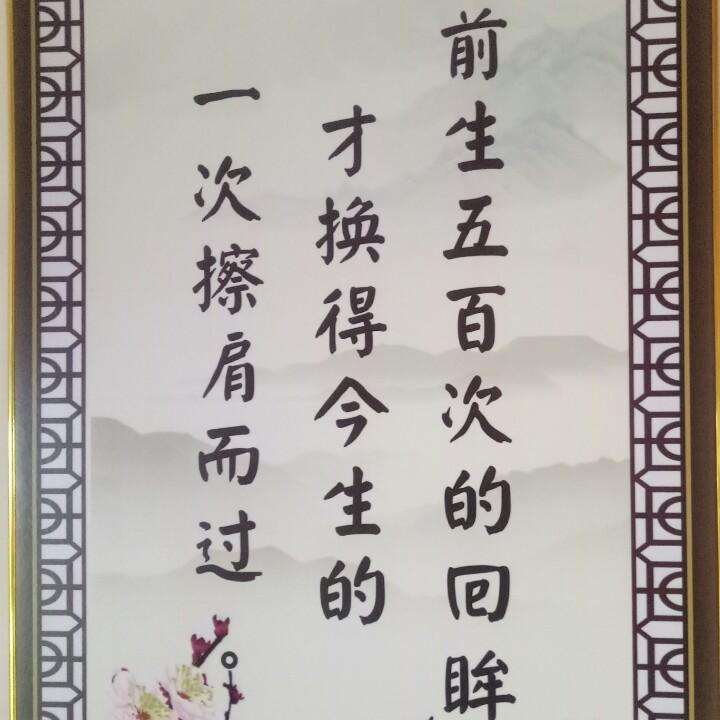 前生五百次的回眸
才换得今生的
一次擦肩而过